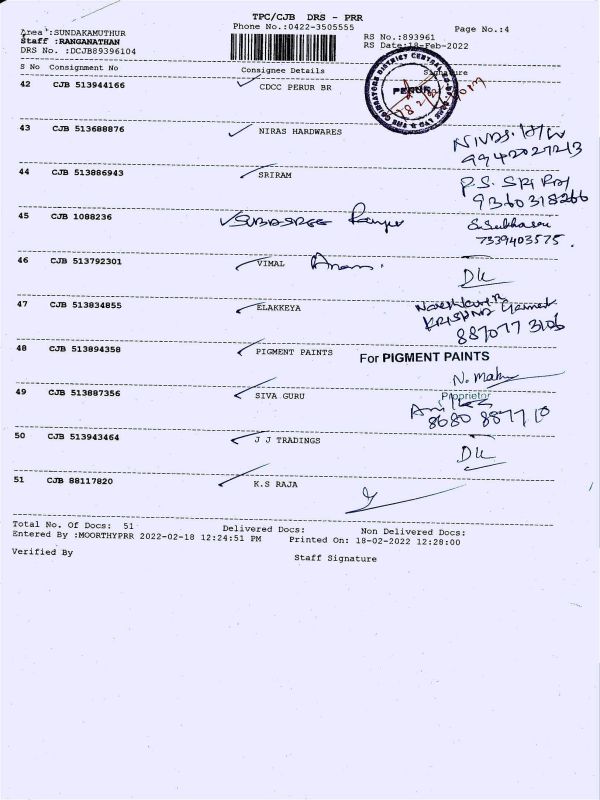 TPC/CJB DRS - PRR
Phone No.:0422-3505555
Page No.:4
Area :SUNDAKAMUTHUR
Staff :RANGANATHAN
DRS No. :DCJB89396104
RS No.:893961
RS Date:18-Feb-2022
S No Consignment No Consignee Details Signature
42 CJB 513944166 CDCC PERUR BR
PERUR
43 CJB 513688876 NIRAS HARDWARES
9942027213
44 CJB 513886943 SRIRAM
P.S. SRI
9360318266
45 CJB 1088236 SUBASREE
7339403575.
46 CJB 513792301 VIMAL
47 CJB 513834855 ELAKKEYA
KRISHNA
887077 3106
48 CJB 513894358 PIGMENT PAINTS For PIGMENT PAINTS
Proprietor
49 CJB 513887356 SIVA GURU
8680 887710
50 CJB 513943464 J J TRADINGS
51 CJB 88117820 K.S RAJA
Total No. Of Docs: 51 Delivered Docs: Non Delivered Docs:
Entered By :MOORTHYPRR 2022-02-18 12:24:51 PM Printed On: 18-02-2022 12:28:00
Verified By Staff Signature